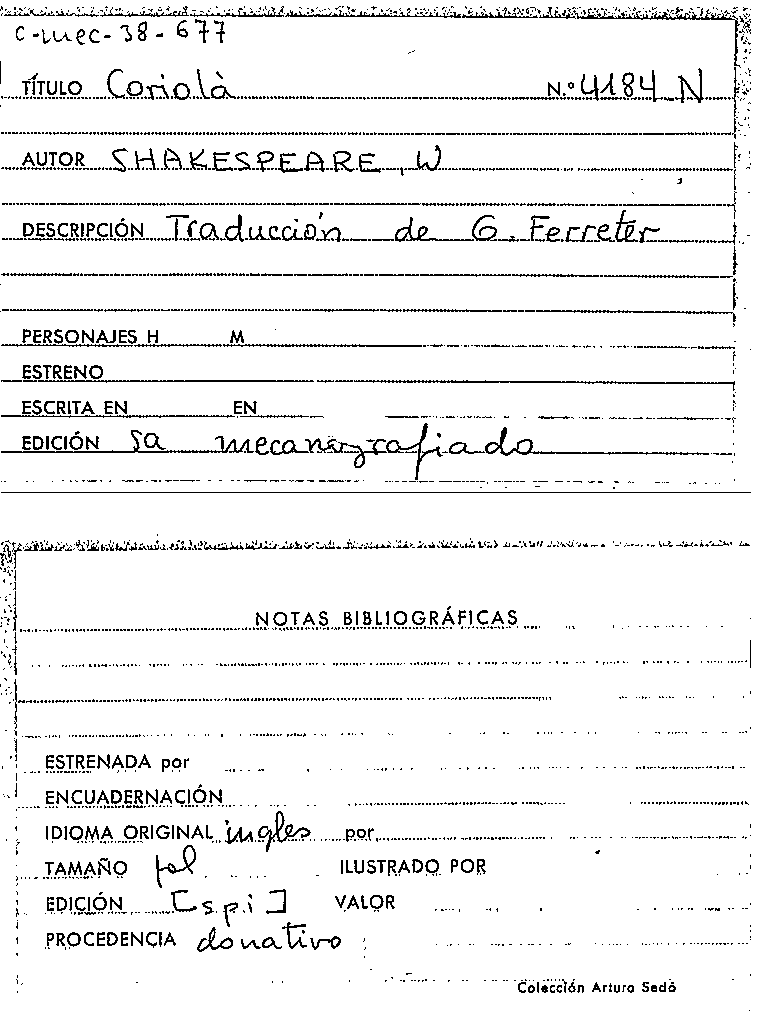 C-Mec-38-677
TÍTULO Coriolà N.º 4184 N
AUTOR SHAKESPEARE, W
DESCRIPCIÓN Traducción de G. Ferreter
PERSONAJES H M
ESTRENO
ESCRITA EN EN
EDICIÓN sa mecanografiado
NOTAS BIBLIOGRÁFICAS
ESTRENADA por
ENCUADERNACIÓN
IDIOMA ORIGINAL ingles por
TAMAÑO fol ILUSTRADO POR
EDICIÓN [s.p.i] VALOR
PROCEDENCIA donativo
Colección Arturo Sedó